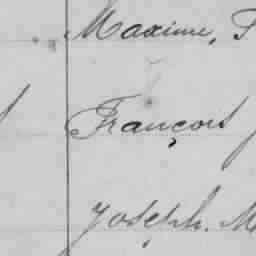 Maxime, F
François
Joseph. M